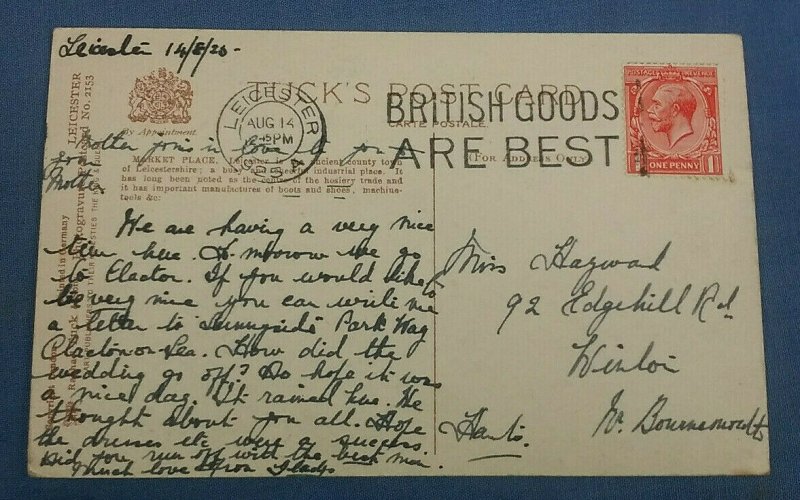 Leicester 14/8/20-
By Appointment.
TUCK'S POST CARD
CARTE POSTALE.
(FOR ADDRESS ONLY)
LEICESTER
AUG 14
45 PM
BRITISH GOODS
ARE BEST
POSTAGE REVENUE
ONE PENNY 1
LEICESTER
No. 2153
Mother joins in love to you
from
Mother
MARKET PLACE, Leicester is an ancient county town
of Leicestershire; a busy and cheerful industrial place. It
has long been noted as the centre of the hosiery trade and
it has important manufactures of boots and shoes, machine-
tools &c:
We are having a very nice
time here. To-morrow we go
to Clacton. If you would like to
be very nice you can write me
a letter to Sunnyside Park Way
Clacton-on-Sea. How did the
wedding go off? Do hope it was
a nice day. It rained here. We
thought about you all. Hope
the dresses etc were a success.
Did you run off with the best man.
Much love from Gladys
Miss Hayward
92 Edgehill Rd
Winton
Nr. Bournemouth
Hants.